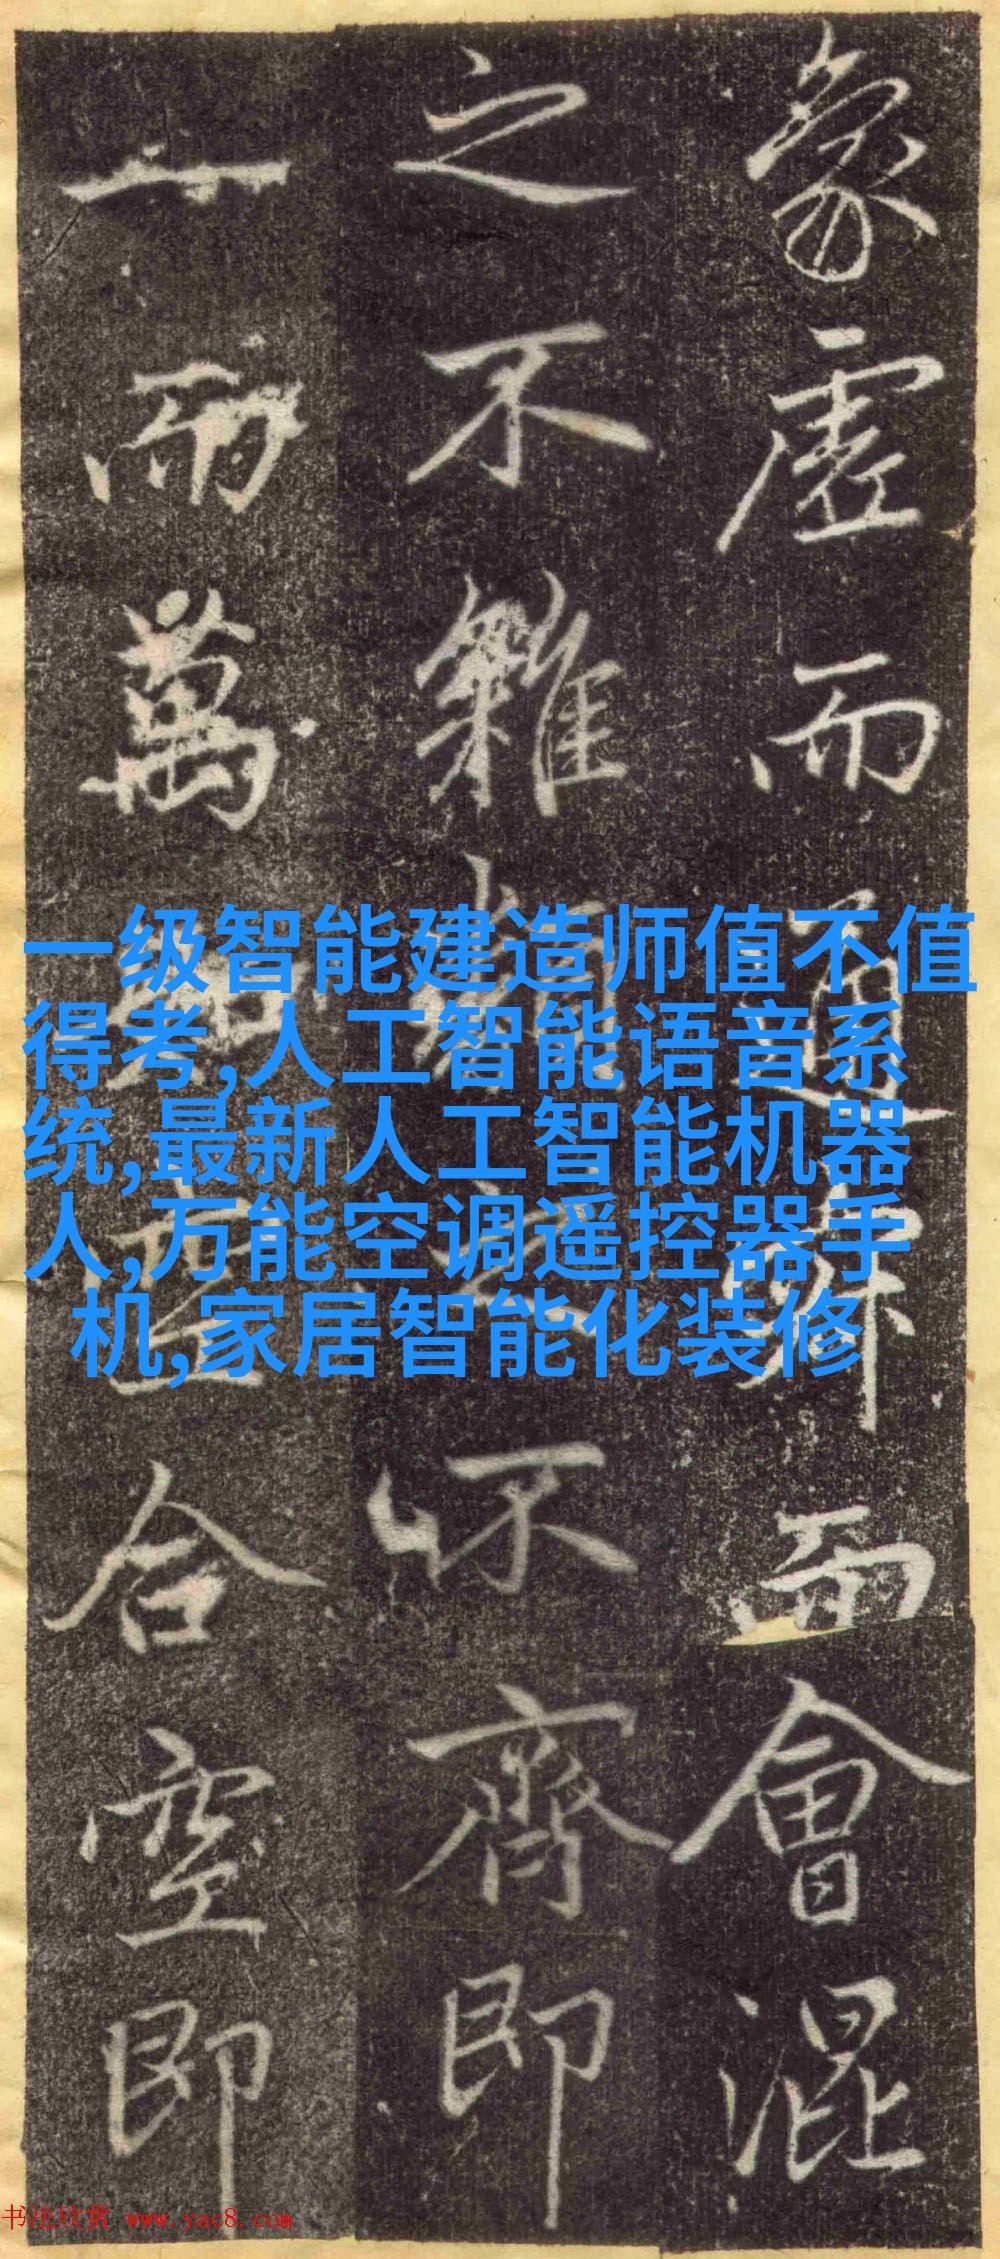 象虛而通而會混
之不雜不齊即
一而萬空合空即
一级智能建造师值不值
得考,人工智能语音系
统,最新人工智能机器
人,万能空调遥控器手
机,家居智能化装修
书法欣赏 www.yac8.com